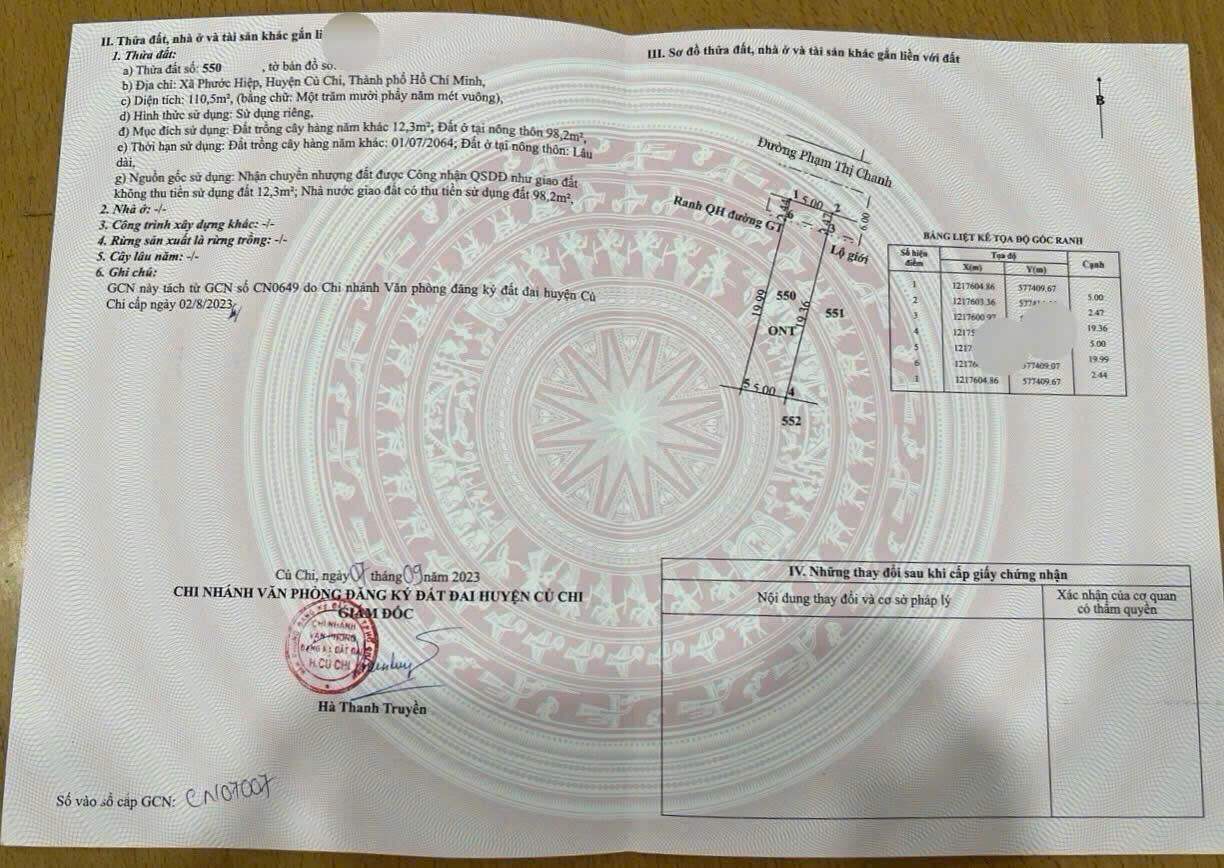 II. Thửa đất, nhà ở và tài sản khác gắn li
1. Thửa đất:
a) Thửa đất số: 550 , tờ bản đồ số:
b) Địa chỉ: Xã Phước Hiệp, Huyện Củ Chi, Thành phố Hồ Chí Minh,
c) Diện tích: 110,5m², (bằng chữ: Một trăm mười phẩy năm mét vuông),
d) Hình thức sử dụng: Sử dụng riêng,
đ) Mục đích sử dụng: Đất trồng cây hàng năm khác 12,3m²; Đất ở tại nông thôn 98,2m²,
e) Thời hạn sử dụng: Đất trồng cây hàng năm khác: 01/07/2064; Đất ở tại nông thôn: Lâu
dài,
g) Nguồn gốc sử dụng: Nhận chuyển nhượng đất được Công nhận QSDĐ như giao đất
không thu tiền sử dụng đất 12,3m²; Nhà nước giao đất có thu tiền sử dụng đất 98,2m²,
2. Nhà ở: -/-
3. Công trình xây dựng khác: -/-
4. Rừng sản xuất là rừng trồng: -/-
5. Cây lâu năm: -/-
6. Ghi chú:
GCN này tách từ GCN số CN0649 do Chi nhánh Văn phòng đăng ký đất đai huyện Củ
Chi cấp ngày 02/8/2023
Củ Chi, ngày 07 tháng 09 năm 2023
CHI NHÁNH VĂN PHÒNG ĐĂNG KÝ ĐẤT ĐAI HUYỆN CỦ CHI
GIÁM ĐỐC
CHI NHÁNH
VĂN PHÒNG
ĐĂNG KÝ ĐẤT ĐAI
H. CỦ CHI
Hà Thanh Truyền
Số vào sổ cấp GCN: CN07007
III. Sơ đồ thửa đất, nhà ở và tài sản khác gắn liền với đất
B
Đường Phạm Thị Chanh
1 5.00 2
Ranh QH đường GT
2.44 6
2.47 3
6.00
Lộ giới
19.99
550
19.36
551
ONT
5 5.00 4
552
BẢNG LIỆT KÊ TỌA ĐỘ GÓC RANH
Số hiệu điểm Tọa độ Cạnh
X(m) Y(m)
1 1217604.86 577409.67
5.00
2 1217603.36 5774
2.47
3 1217600.97
19.36
4 12175
5.00
5 1217
19.99
6 12176 577409.07
2.44
1 1217604.86 577409.67
IV. Những thay đổi sau khi cấp giấy chứng nhận
Nội dung thay đổi và cơ sở pháp lý
Xác nhận của cơ quan
có thẩm quyền